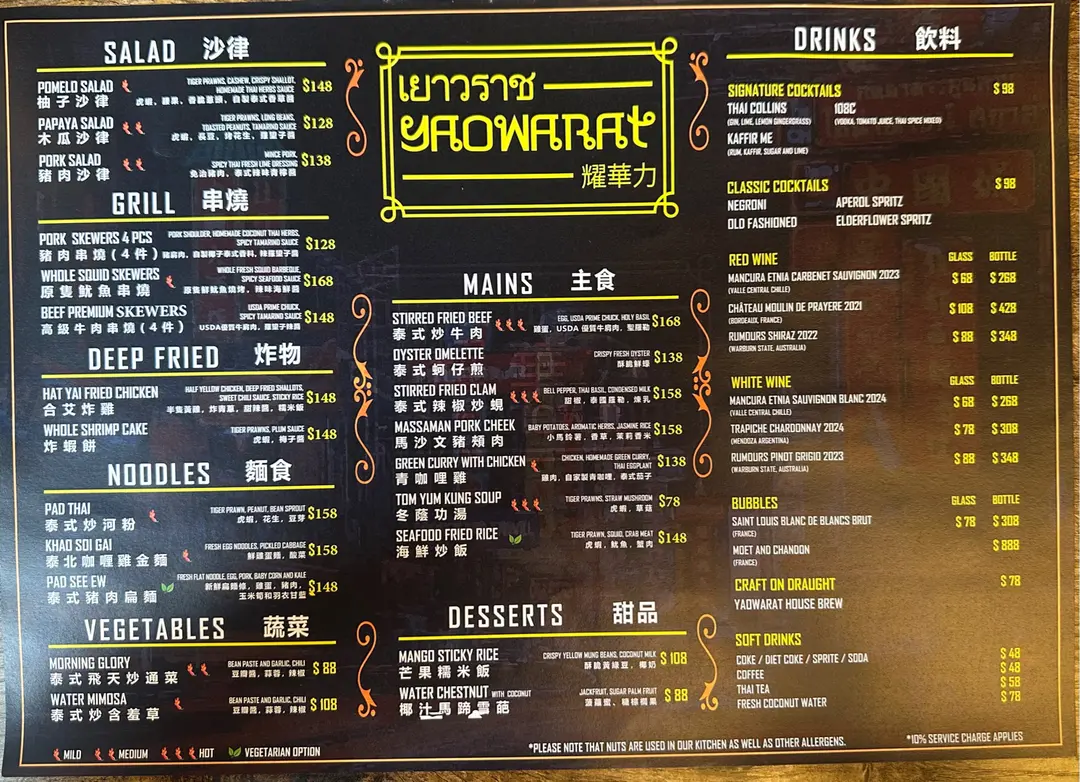 SALAD 沙律
POMELO SALAD
TIGER PRAWNS, CASHEW, CRISPY SHALLOT,
HOMEMADE THAI HERBS SAUCE
$148
柚子沙律
虎蝦，腰果，香脆蔥頭，自製泰式香草醬
PAPAYA SALAD
TIGER PRAWNS, LONG BEANS,
TOASTED PEANUTS, TAMARIND SAUCE
$128
木瓜沙律
虎蝦，長豆，烤花生，羅望子醬
PORK SALAD
MINCE PORK,
SPICY THAI FRESH LIME DRESSING
$138
豬肉沙律
免治豬肉，泰式辣味青檸醬
GRILL 串燒
PORK SKEWERS 4 PCS
PORK SHOULDER, HOMEMADE COCONUT THAI HERBS,
SPICY TAMARIND SAUCE
$128
豬肉串燒(4件)
豬肩肉，自製椰子泰式香料，辣羅望子醬
WHOLE SQUID SKEWERS
WHOLE FRESH SQUID BARBEQUE,
SPICY SEAFOOD SAUCE
$168
原隻魷魚串燒
原隻鮮魷魚燒烤，辣味海鮮醬
BEEF PREMIUM SKEWERS
USDA PRIME CHUCK,
SPICY TAMARIND SAUCE
$148
高級牛肉串燒(4件)
USDA優質牛肩肉，羅望子辣醬
DEEP FRIED 炸物
HAT YAI FRIED CHICKEN
HALF YELLOW CHICKEN, DEEP FRIED SHALLOTS,
SWEET CHILI SAUCE, STICKY RICE
$148
合艾炸雞
半隻黃雞，炸青蔥，甜辣醬，糯米飯
WHOLE SHRIMP CAKE
TIGER PRAWNS, PLUM SAUCE
$148
炸蝦餅
虎蝦，梅子醬
NOODLES 麵食
PAD THAI
TIGER PRAWN, PEANUT, BEAN SPROUT
$158
泰式炒河粉
虎蝦，花生，豆芽
KHAO SOI GAI
FRESH EGG NOODLES, PICKLED CABBAGE
$158
泰北咖喱雞金麵
鮮雞蛋麵，酸菜
PAD SEE EW
FRESH FLAT NOODLE, EGG, PORK, BABY CORN AND KALE
$148
泰式豬肉扁麵
新鮮扁麵條，雞蛋，豬肉，
玉米筍和羽衣甘藍
VEGETABLES 蔬菜
MORNING GLORY
BEAN PASTE AND GARLIC, CHILI
$ 88
泰式飛天炒通菜
豆瓣醬，蒜蓉，辣椒
WATER MIMOSA
BEAN PASTE AND GARLIC, CHILI
$ 108
泰式炒含羞草
豆瓣醬，蒜蓉，辣椒
MILD MEDIUM HOT VEGETARIAN OPTION
เยาวราช
YAOWARAT
耀華力
MAINS 主食
STIRRED FRIED BEEF
EGG, USDA PRIME CHUCK, HOLY BASIL
$168
泰式炒牛肉
雞蛋，USDA 優質牛肩肉，聖羅勒
OYSTER OMELETTE
CRISPY FRESH OYSTER
$138
泰式蚵仔煎
酥脆鮮蠔
STIRRED FRIED CLAM
BELL PEPPER, THAI BASIL, CONDENSED MILK
$158
泰式辣椒炒蜆
甜椒，泰國羅勒，煉乳
MASSAMAN PORK CHEEK
BABY POTATOES, AROMATIC HERBS, JASMINE RICE
$158
馬沙文豬頰肉
小馬鈴薯，香草，茉莉香米
GREEN CURRY WITH CHICKEN
CHICKEN, HOMEMADE GREEN CURRY,
THAI EGGPLANT
$138
青咖哩雞
雞肉，自家製青咖哩，泰式茄子
TOM YUM KUNG SOUP
TIGER PRAWNS, STRAW MUSHROOM
$78
冬蔭功湯
虎蝦，草菇
SEAFOOD FRIED RICE
TIGER PRAWN, SQUID, CRAB MEAT
$148
海鮮炒飯
虎蝦，魷魚，蟹肉
DESSERTS 甜品
MANGO STICKY RICE
CRISPY YELLOW MUNG BEANS, COCONUT MILK
$ 108
芒果糯米飯
酥脆黃綠豆，椰奶
WATER CHESTNUT WITH COCONUT
JACKFRUIT, SUGAR PALM FRUIT
$ 88
椰汁馬蹄雪葩
菠蘿蜜、糖棕櫚果
*PLEASE NOTE THAT NUTS ARE USED IN OUR KITCHEN AS WELL AS OTHER ALLERGENS.
DRINKS 飲料
SIGNATURE COCKTAILS $ 98
THAI COLLINS 108C
(GIN, LIME, LEMON GINGERGRASS) (VODKA, TOMATO JUICE, THAI SPICE MIXED)
KAFFIR ME
(RUM, KAFFIR, SUGAR AND LIME)
CLASSIC COCKTAILS $ 98
NEGRONI APEROL SPRITZ
OLD FASHIONED ELDERFLOWER SPRITZ
RED WINE GLASS BOTTLE
MANCURA ETNIA CARBENET SAUVIGNON 2023 $ 68 $ 268
(VALLE CENTRAL CHILLE)
CHÂTEAU MOULIN DE PRAYERE 2021 $ 108 $ 428
(BORDEAUX, FRANCE)
RUMOURS SHIRAZ 2022 $ 88 $ 348
(WARBURN STATE, AUSTRALIA)
WHITE WINE GLASS BOTTLE
MANCURA ETNIA SAUVIGNON BLANC 2024 $ 68 $ 268
(VALLE CENTRAL CHILLE)
TRAPICHE CHARDONNAY 2024 $ 78 $ 308
(MENDOZA ARGENTINA)
RUMOURS PINOT GRIGIO 2023 $ 88 $ 348
(WARBURN STATE, AUSTRALIA)
BUBBLES GLASS BOTTLE
SAINT LOUIS BLANC DE BLANCS BRUT $ 78 $ 308
(FRANCE)
MOET AND CHANDON $ 888
(FRANCE)
CRAFT ON DRAUGHT $ 78
YAOWARAT HOUSE BREW
SOFT DRINKS
COKE / DIET COKE / SPRITE / SODA $ 48
COFFEE $ 48
THAI TEA $ 58
FRESH COCONUT WATER $ 78
*10% SERVICE CHARGE APPLIES